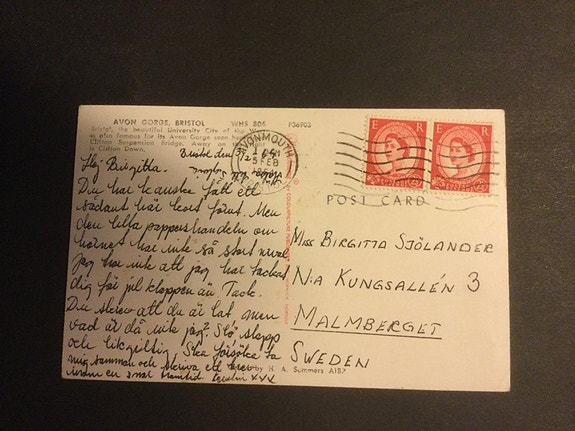 AVON GORGE, BRISTOL WHS 806 P36903
Bristol, the beautiful University City of the
is also famous for its Avon Gorge seen
Clifton Suspension Bridge. Away on the
is Clifton Down.
Bristol den
AVONMOUTH
FEB
E R
E R
POST CARD
Hej Birgitta.
Du har kanske fått ett
sådant här kort förut. Men
den lilla pappershandeln om
hörnet har inte så stort urval
Jag har inte att jag har tackat
dig för julklappen än Tack.
Du skrev att du är lat men
vad är då inte jag? Slö slapp
och likgiltig Ska försöka ta
mig samman och skriva ett brev
inom en snar framtid
Miss BIRGITTA SJÖLANDER
N:A KUNGSALLÉN 3
MALMBERGET
SWEDEN
by H. A. Summers AIBP